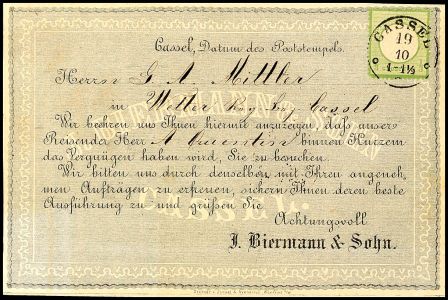 CASSEL
19
10
1-1½
Cassel, Datum des Poststempels.
Herrn G. A. Mittler
in Wetter Reg. bez. Cassel
Wir beehren uns Ihnen hiermit anzuzeigen, daß unser
Reisender Herr A. binnen Kurzem
das Vergnügen haben wird, Sie zu besuchen.
Wir bitten uns durch denselben mit Ihren angeneh-
men Aufträgen zu erfreuen, sichern Ihnen deren beste
Ausführung zu und grüßen Sie
Achtungsvoll
J. Biermann & Sohn.